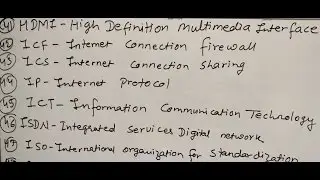 41 HDMI - High Definition Multimedia Interface
42 ICF - Internet Connection firewall
43 ICS - Internet Connection sharing
44 IP - Internet Protocol
45 ICT - Information Communication Technology
46 ISDN - Integrated Services Digital network
47 ISO - International organization for standardization